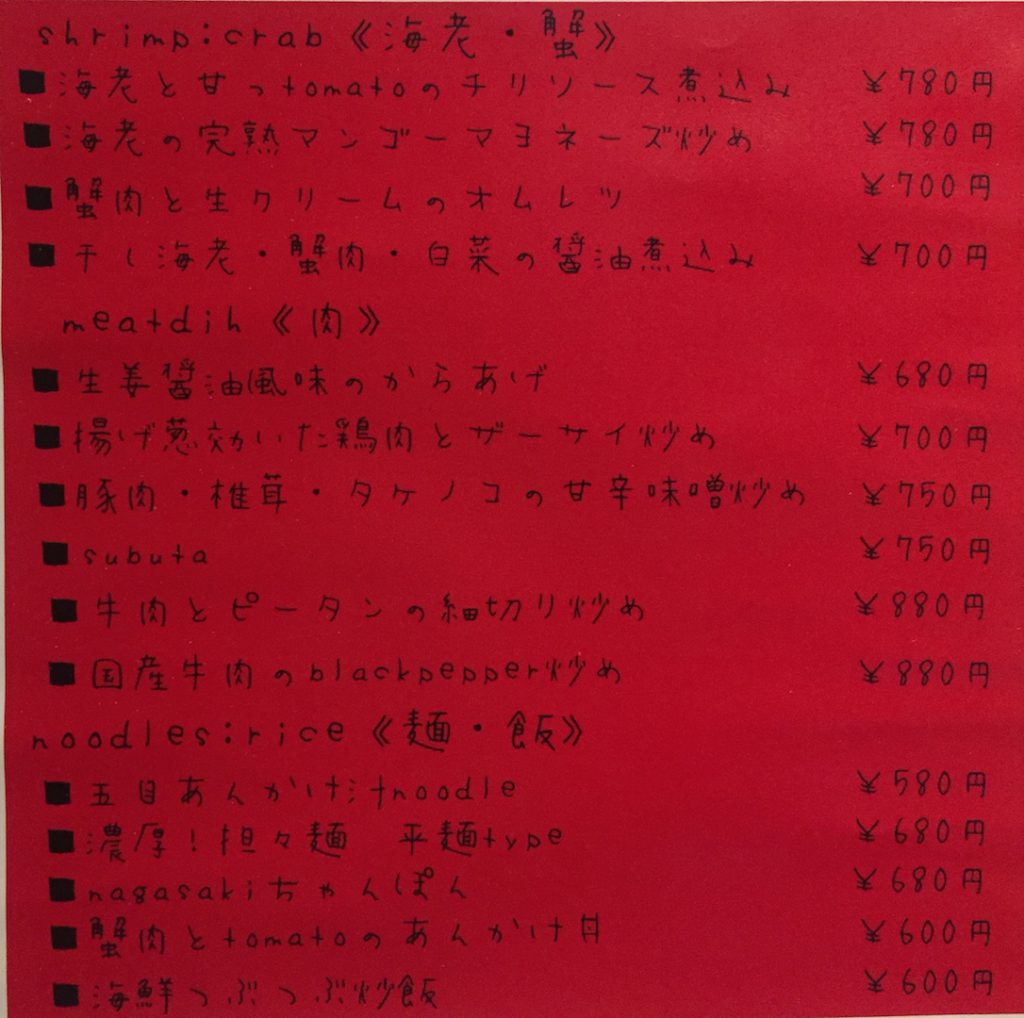 shrimp:crab《海老・蟹》
■海老と甘っtomatoのチリソース煮込み ¥780円
■海老の完熟マンゴーマヨネーズ炒め ¥780円
■蟹肉と生クリームのオムレツ ¥700円
■干し海老・蟹肉・白菜の醤油煮込み ¥700円
meatdih《肉》
■生姜醤油風味のからあげ ¥680円
■揚げ葱効いた鶏肉とザーサイ炒め ¥700円
■豚肉・椎茸・タケノコの甘辛味噌炒め ¥750円
■subuta ¥750円
■牛肉とピータンの細切り炒め ¥880円
■国産牛肉のblackpepper炒め ¥880円
noodles:rice《麺・飯》
■五目あんかけ汁noodle ¥580円
■濃厚!担々麺 平麺type ¥680円
■nagasakiちゃんぽん ¥680円
■蟹肉とtomatoのあんかけ丼 ¥600円
■海鮮つぶつぶ炒飯 ¥600円